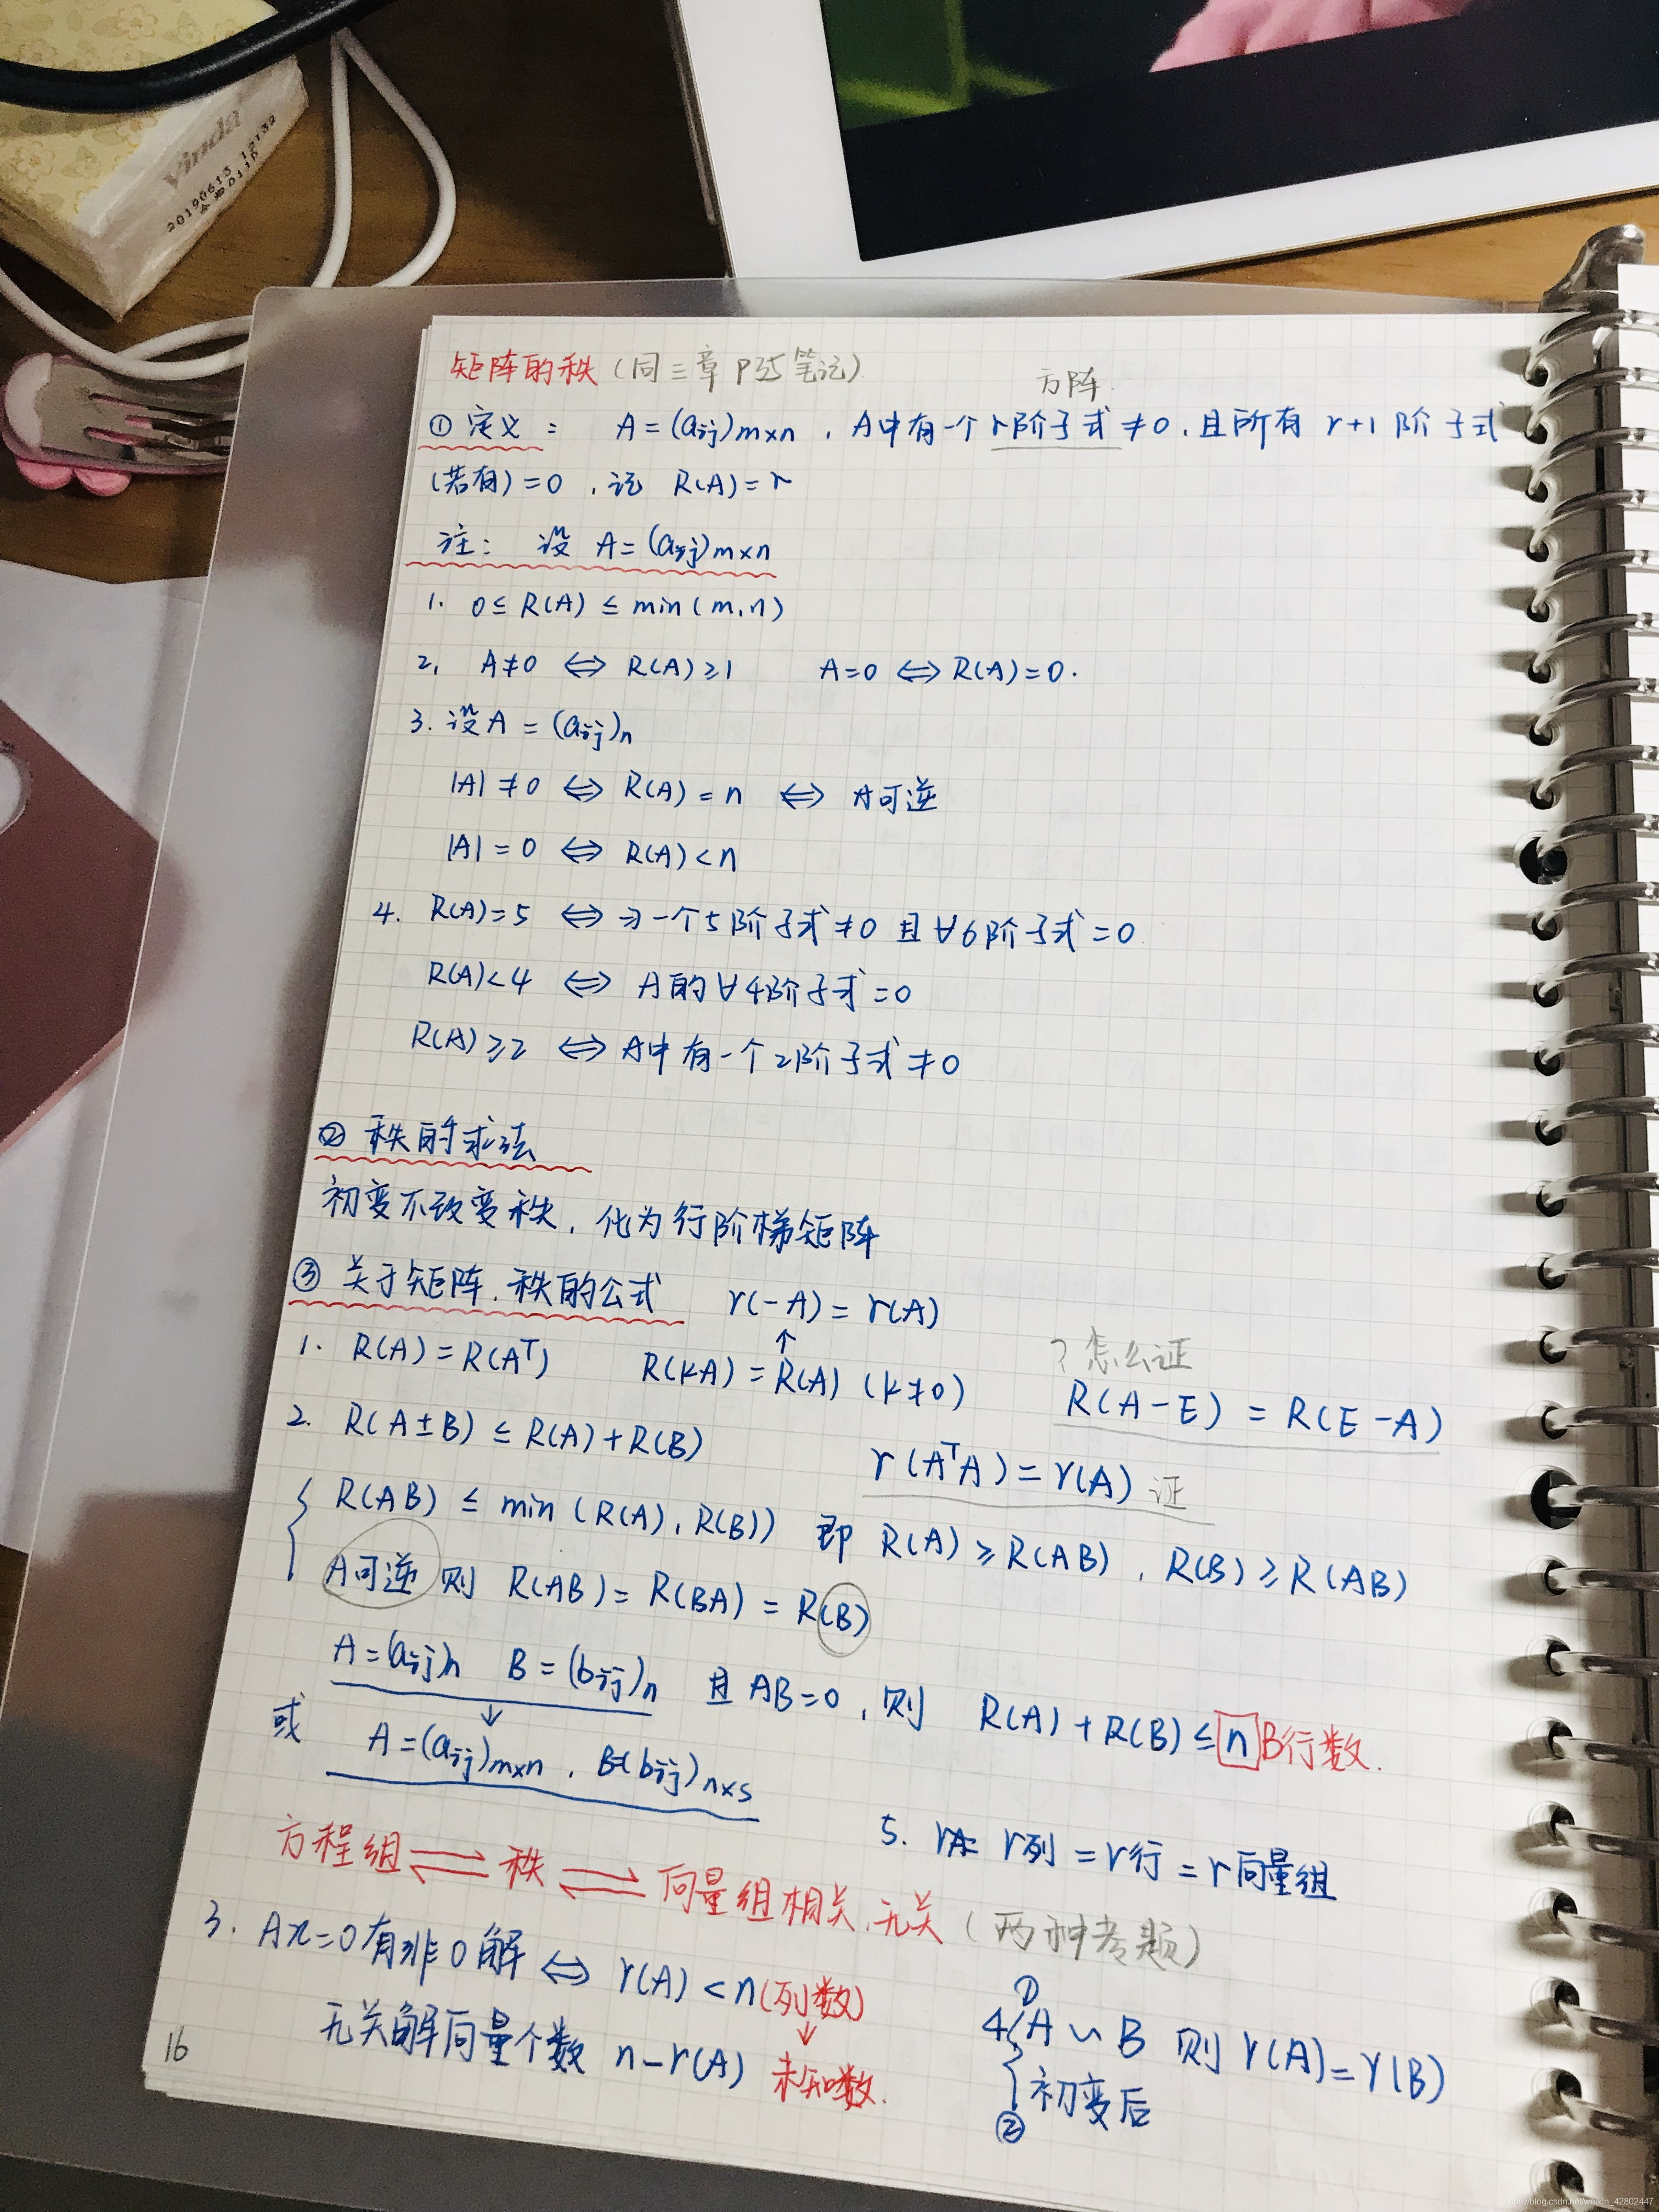 Vinda
20190613 12132
矩阵的秩(同三章P35笔记)
方阵
① 定义: A=(aij)m×n,A中有一个r阶子式≠0,且所有 r+1 阶子式
(若有)=0,记 R(A)=r
注: 设 A=(aij)m×n
1. 0≤R(A)≤min(m,n)
2, A≠0 ⇔ R(A)≥1 A=0 ⇔ R(A)=0.
3. 设A=(aij)n
|A|≠0 ⇔ R(A)=n ⇔ A可逆
|A|=0 ⇔ R(A)<n
4. R(A)=5 ⇔ ∃一个5阶子式≠0 且∀6阶子式=0
R(A)<4 ⇔ A的∀4阶子式=0
R(A)≥2 ⇔ A中有一个2阶子式≠0
② 秩的求法
初变不改变秩,化为行阶梯矩阵
③ 关于矩阵.秩的公式 r(-A)=r(A)
↑
1. R(A)=R(Aᵀ) R(kA)=R(A)(k≠0)
?怎么证
R(A-E)=R(E-A)
2. R(A±B)≤R(A)+R(B)
r(AᵀA)=r(A) 证
R(AB)≤min(R(A),R(B)) 即 R(A)≥R(AB),R(B)≥R(AB)
A可逆 则 R(AB)=R(BA)=R(B)
A=(aij)n B=(bij)n 且 AB=0,则 R(A)+R(B)≤n B行数.
↓
或 A=(aij)m×n,B=(bij)n×s
5. rA= r列=r行=r向量组
方程组⇌秩⇌向量组相关.无关(两种考题)
3. Ax=0有非0解 ⇔ r(A)<n(列数)
↓
无关解向量个数 n-r(A) 未知数.
①
4. A∽B 则 r(A)=r(B)
② 初变后
16
https://blog.csdn.net/weixin_42802447